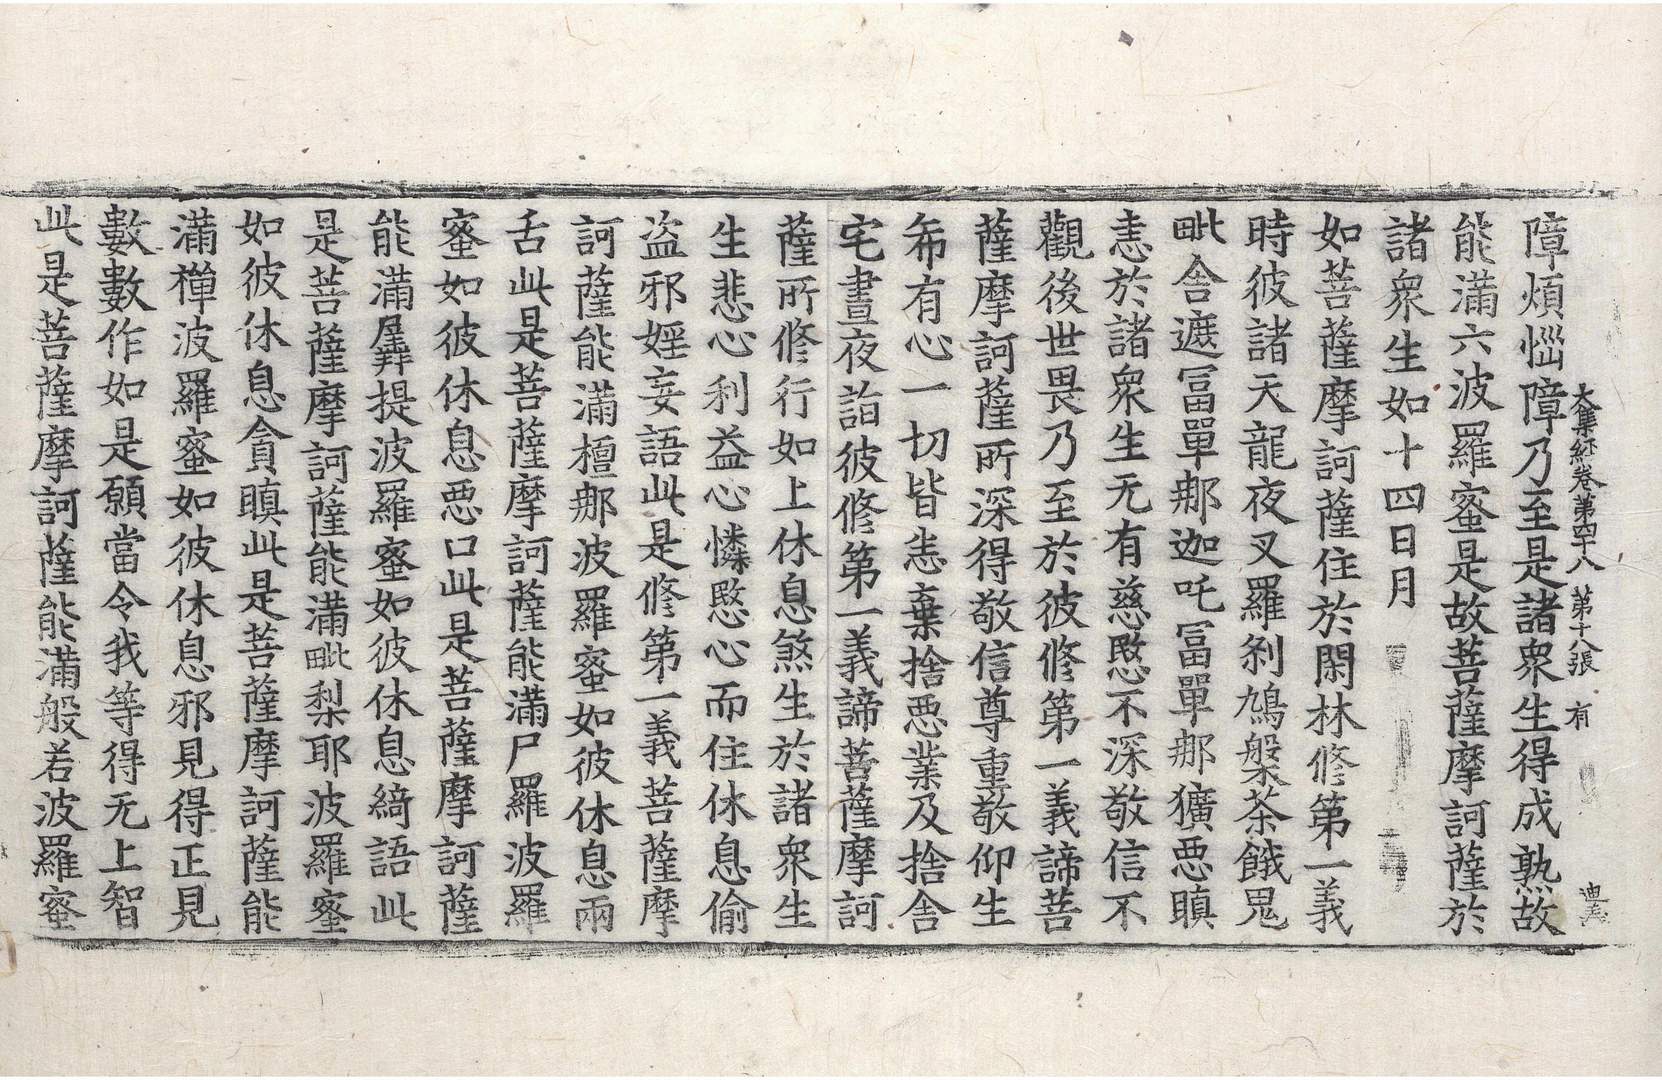 大集経卷第四十八 第十八張 有
障煩惱障乃至是諸衆生得成熟故
能滿六波羅蜜是故菩薩摩訶薩於
諸衆生如十四日月
如菩薩摩訶薩住於閑林修第一義
時彼諸天龍夜叉羅剎鳩槃茶餓鬼
毗舍遮冨單那迦吒冨單那獷惡瞋
恚於諸衆生无有慈愍不深敬信不
觀後世畏乃至於彼修第一義諦菩
薩摩訶薩所深得敬信尊重敬仰生
希有心一切皆悉棄捨惡業及捨舍
宅晝夜詣彼修第一義諦菩薩摩訶
薩所修行如上休息煞生於諸衆生
生悲心利益心憐愍心而住休息偷
盗邪婬妄語此是修第一義菩薩摩
訶薩能滿檀那波羅蜜如彼休息兩
舌此是菩薩摩訶薩能滿尸羅波羅
蜜如彼休息惡口此是菩薩摩訶薩
能滿羼提波羅蜜如彼休息綺語此
是菩薩摩訶薩能滿毗梨耶波羅蜜
如彼休息貪瞋此是菩薩摩訶薩能
滿禪波羅蜜如彼休息邪見得正見
數數作如是願當令我等得无上智
此是菩薩摩訶薩能滿般若波羅蜜